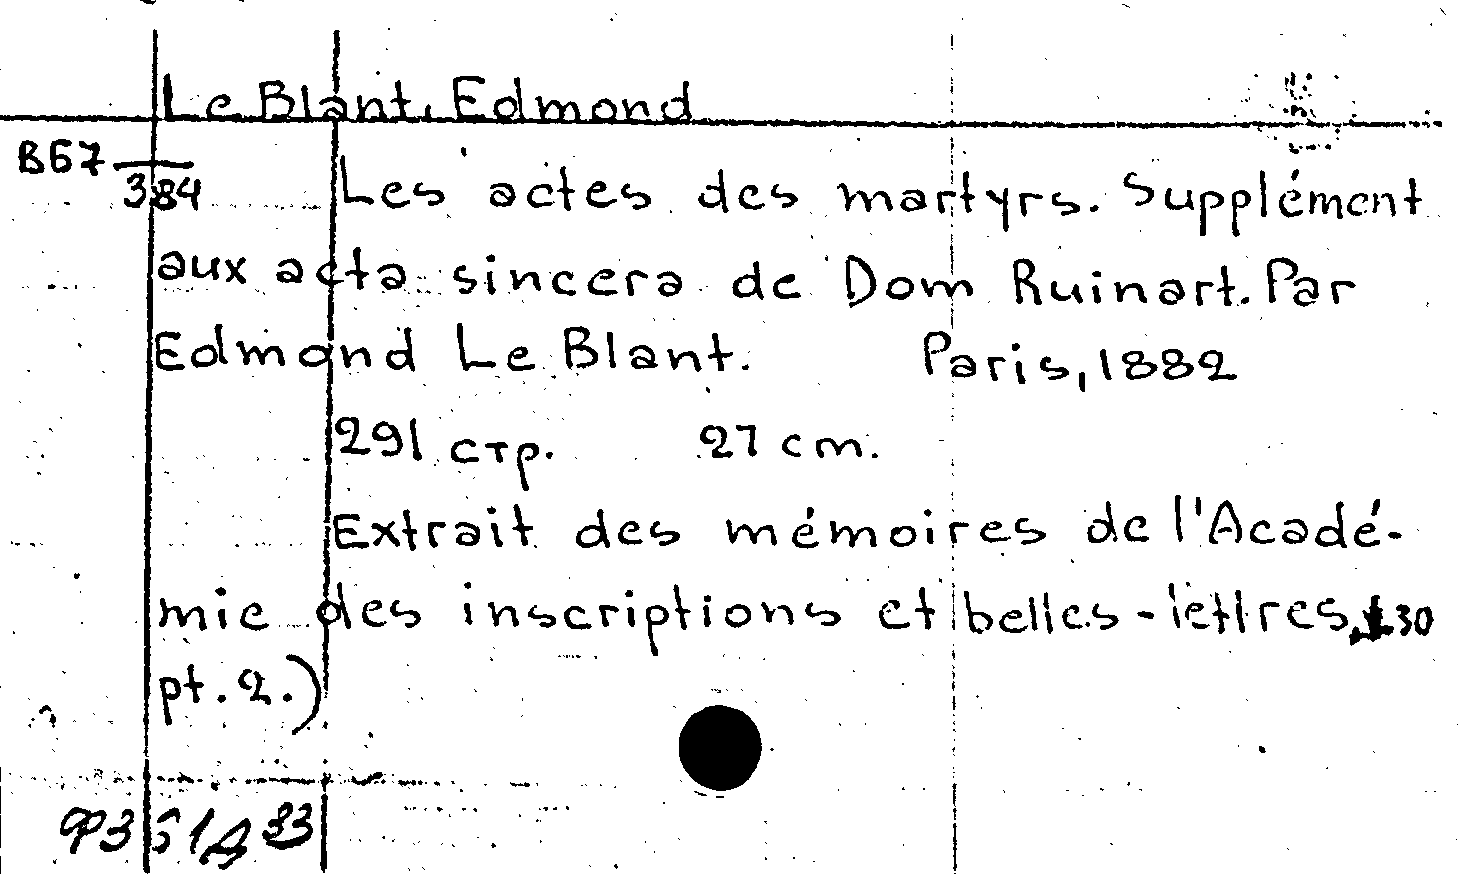 Le Blant, Edmond
В67
384
Les actes des martyrs. Supplément
aux acta sincera de Dom Ruinart. Par
Edmond Le Blant. Paris, 1882
291 стр. 27 cm.
Extrait des mémoires de l'Acadé-
mie des inscriptions et belles-lettres, t 30
pt. 2.)